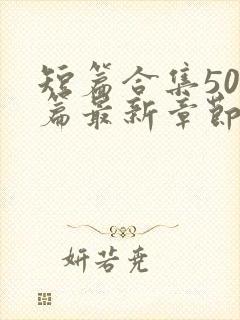 短篇合集50
篇最新章节
妍若尧